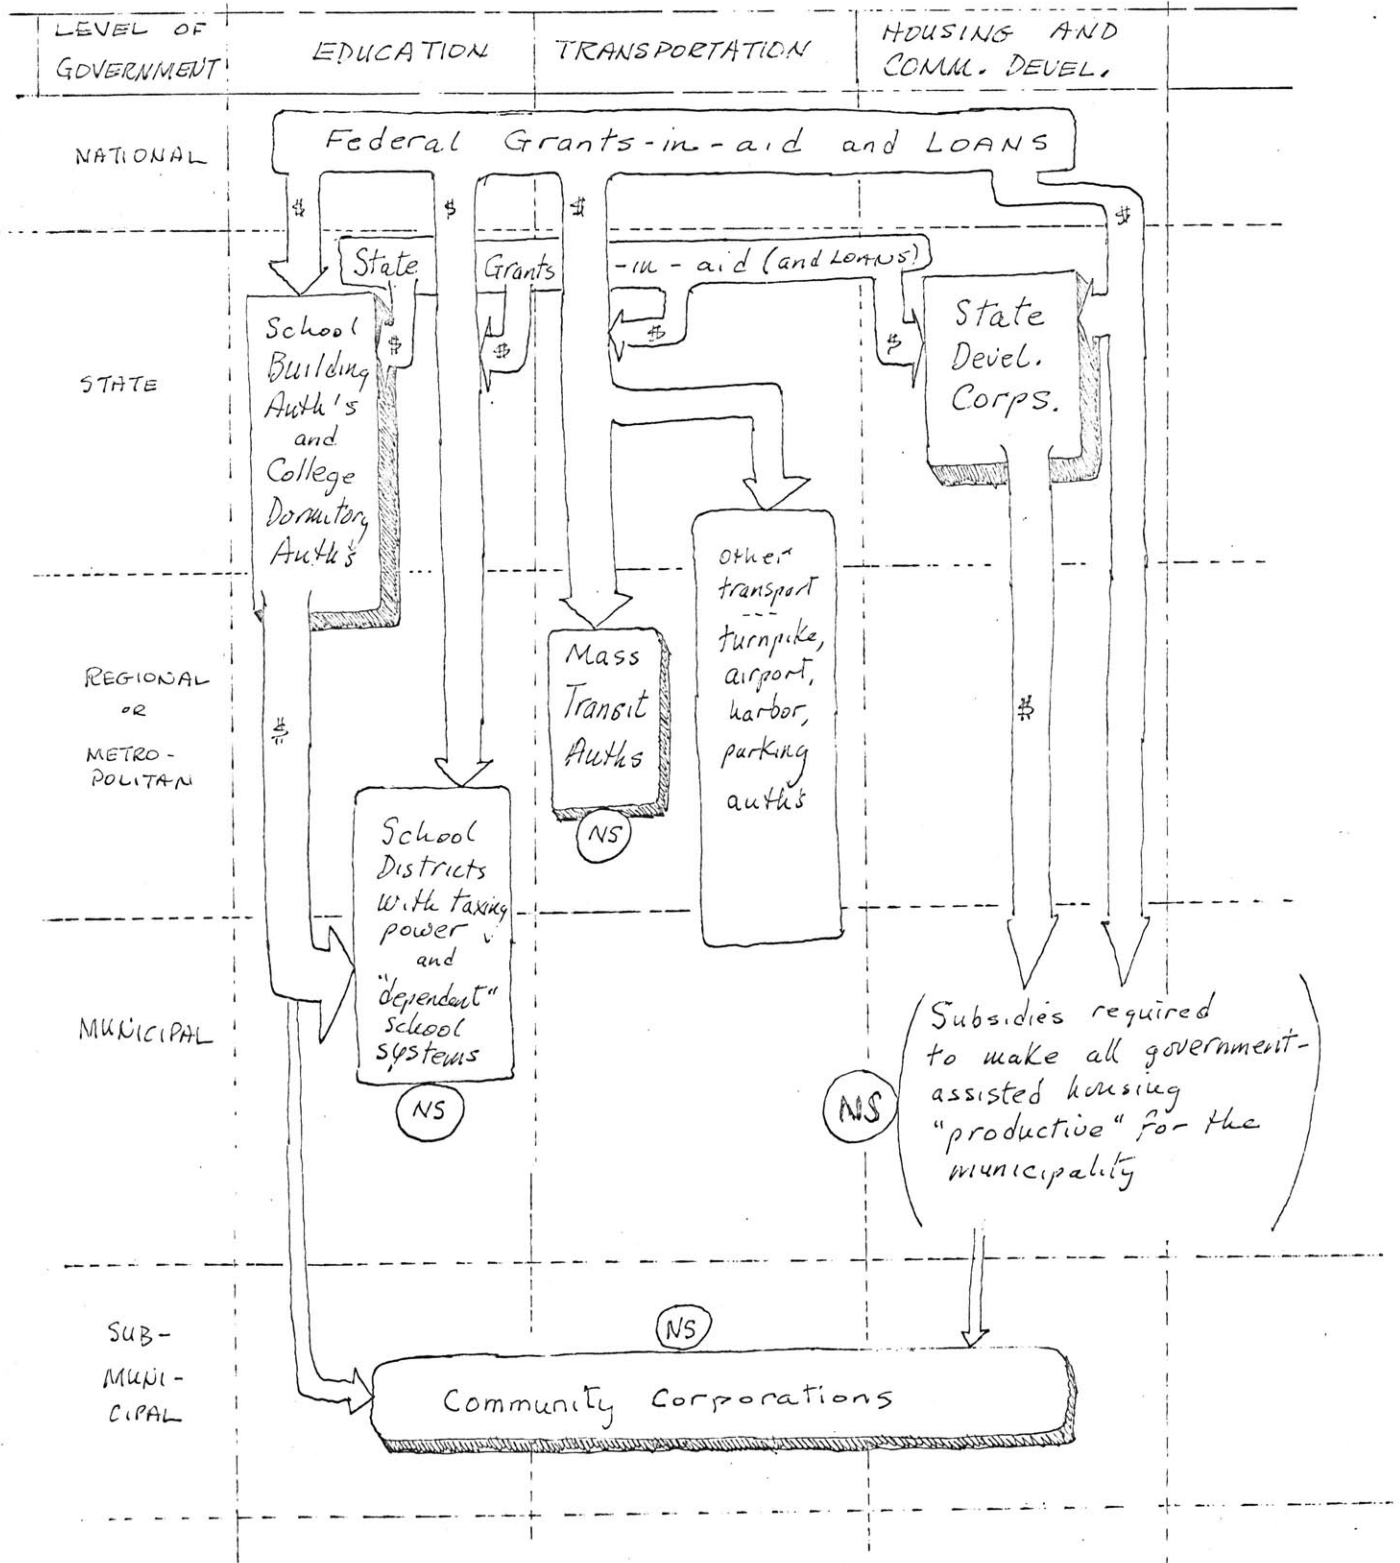 LEVEL OF
GOVERNMENT
EDUCATION
TRANSPORTATION
HOUSING AND
COMM. DEVEL.
NATIONAL
Federal Grants-in-aid and LOANS
$
$
$
$
State Grants -in-aid (and LOANS)
$
$
$
$
STATE
School
Building
Auth's
and
College
Dormitory
Auth's
State
Devel.
Corps.
REGIONAL
OR
METRO-
POLITAN
$
Mass
Transit
Auths
NS
Other
transport
---
turnpike,
airport,
harbor,
parking
auth's
$
School
Districts
with taxing
power
and
"dependent"
school
systems
NS
MUNICIPAL
NS
Subsidies required
to make all government-
assisted housing
"productive" for the
municipality
SUB-
MUNI-
CIPAL
NS
Community Corporations